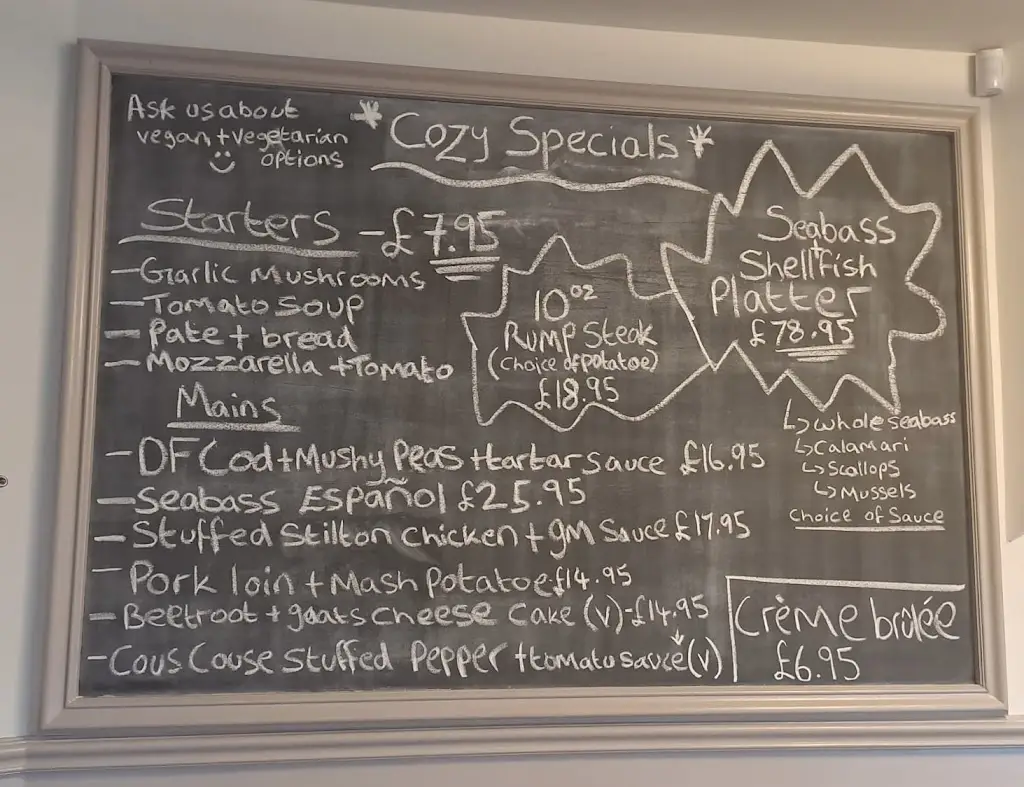 Ask us about
vegan + vegetarian
options
* Cozy Specials *
Starters - £7.95
- Garlic Mushrooms
- Tomato soup
- Pate + bread
- Mozzarella + Tomato
10oz
Rump Steak
(Choice of potatoe)
£18.95
Seabass
+
Shellfish
Platter
£78.95
↳ whole seabass
↳ Calamari
↳ Scallops
↳ Mussels
Choice of Sauce
Mains
- DF Cod + Mushy Peas + tartar sauce £16.95
- Seabass Español £25.95
- Stuffed Stilton Chicken + gM Sauce £17.95
- Pork loin + Mash Potatoe £14.95
- Beetroot + goats cheese Cake (V) - £14.95
- Cous Couse Stuffed Pepper + tomato sauce (V)
Crème brûlée
£6.95